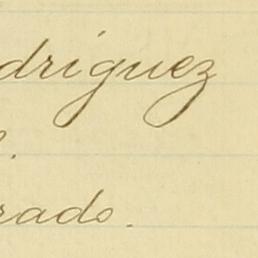 driguez
.
rado.